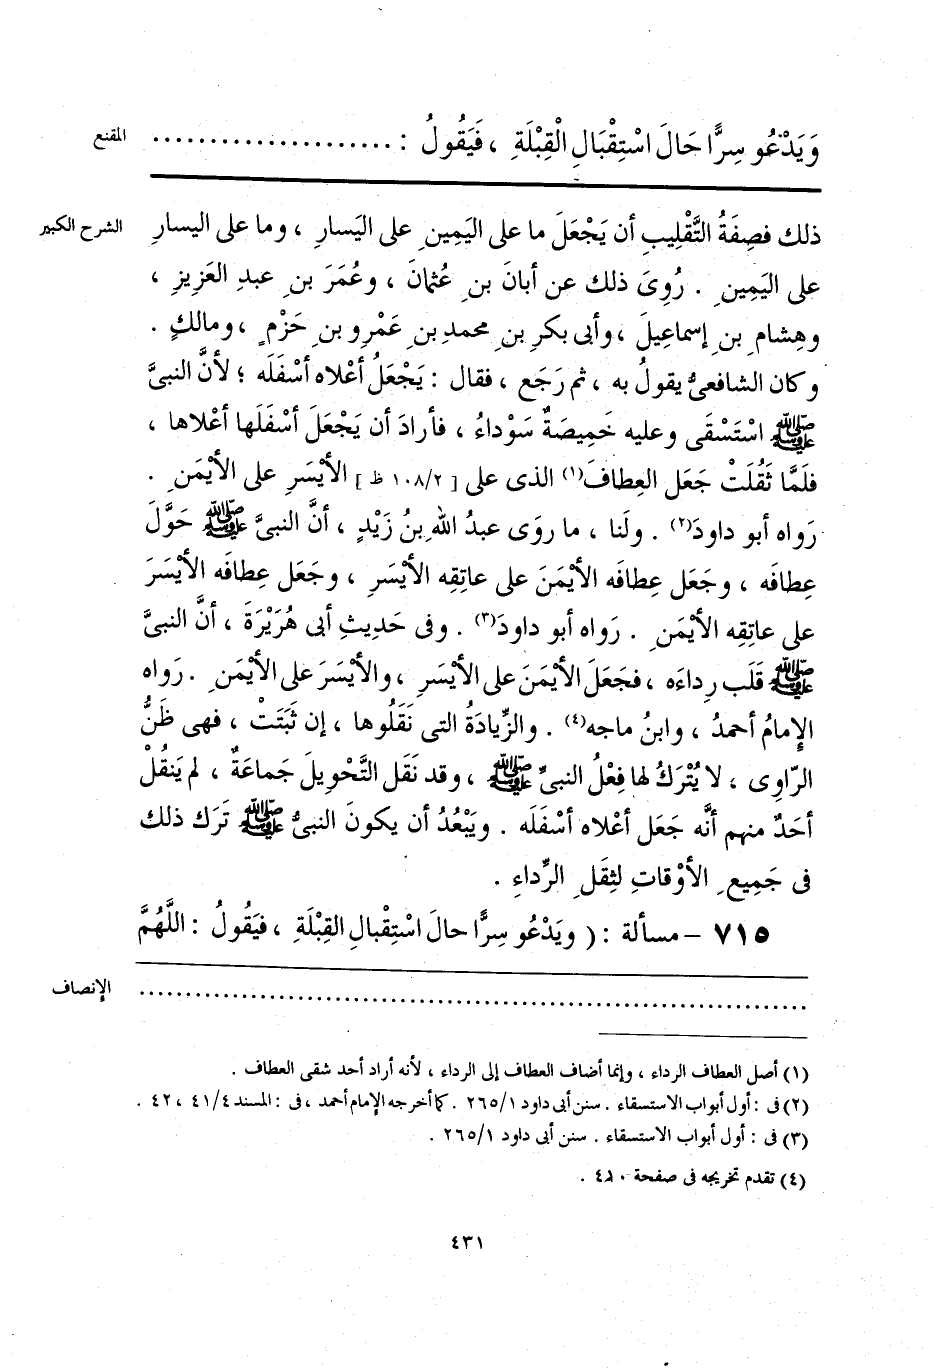 المقنع وَيَدْعُو سِرًّا حَالَ اسْتِقْبَالِ الْقِبْلَةِ ، فَيَقُولُ : .....................
الشرح الكبير ذلك فصِفَةُ التَّقْلِيبِ أن يَجْعَلَ ما على اليَمِينِ على اليَسارِ ، وما على اليسارِ
على اليَمِينِ . رُوِىَ ذلك عن أبانَ بنِ عُثمانَ ، وعُمَرَ بنِ عبدِ العَزِيزِ ،
وهِشامِ بنِ إسماعِيلَ ، وأبى بكرِ بنِ محمدِ بنِ عَمْرِو بنِ حَزْمٍ ، ومالكٍ .
وكان الشافعىُّ يقولُ به ، ثم رَجَع ، فقال : يَجْعَلُ أعْلاه أسْفَلَه ؛ لأنَّ النبىَّ
ﷺ اسْتَسْقَى وعليه خَمِيصَةٌ سَوْداءُ ، فأرادَ أن يَجْعَلَ أسْفَلَها أعْلاها ،
فلَمَّا ثَقُلَتْ جَعَل العِطافَ(١) الذى على [ ١٠٨/٢ ظ ] الأيْسَرِ على الأيْمَنِ .
رَواه أبو داودَ(٢) . ولَنا ، ما روَى عبدُ اللهِ بنُ زَيْدٍ ، أنَّ النبىَّ ﷺ حَوَّلَ
عِطافَه ، وجَعَل عِطافَه الأيْمَنَ على عاتِقِه الأيْسَرِ ، وجَعَل عِطافَه الأيْسَرَ
على عاتِقِه الأيْمَنِ . رَواه أبو داودَ(٣) . وفى حَدِيثِ أبى هُرَيْرَةَ ، أنَّ النبىَّ
ﷺ قَلَب رِداءَه ، فجَعَلَ الأيْمَنَ على الأيْسَرِ ، والأيْسَرَ على الأيْمَنِ . رَواه
الإِمامُ أحمدُ ، وابنُ ماجه(٤) . والزِّيادَةُ التى نَقَلُوها ، إن ثَبَتَتْ ، فهى ظَنُّ
الرّاوِى ، لا يُتْرَكُ لها فِعْلُ النبىِّ ﷺ ، وقد نَقَل التَّحْوِيلَ جَماعَةٌ ، لم يَنقُلْ
أحَدٌ منهم أنَّه جَعَل أعْلاه أسْفَلَه . ويَبْعُدُ أن يكونَ النبىُّ ﷺ تَرَك ذلك
فى جَمِيعِ الأوْقاتِ لثِقَلِ الرِّداءِ .
٧١٥ – مسألة : ( ويَدْعُو سِرًّا حالَ اسْتِقْبالِ القِبْلَةِ ، فيَقُولُ : اللَّهُمَّ
الإنصاف ................................................................
(١) أصل العطاف الرداء ، وإنما أضاف العطاف إلى الرداء ، لأنه أراد أحد شقى العطاف .
(٢) فى : أول أبواب الاستسقاء . سنن أبى داود ٢٦٥/١ . كما أخرجه الإمام أحمد ، فى : المسند ٤١/٤ ، ٤٢ .
(٣) فى : أول أبواب الاستسقاء . سنن أبى داود ٢٦٥/١ .
(٤) تقدم تخريجه فى صفحة .
٤٣١